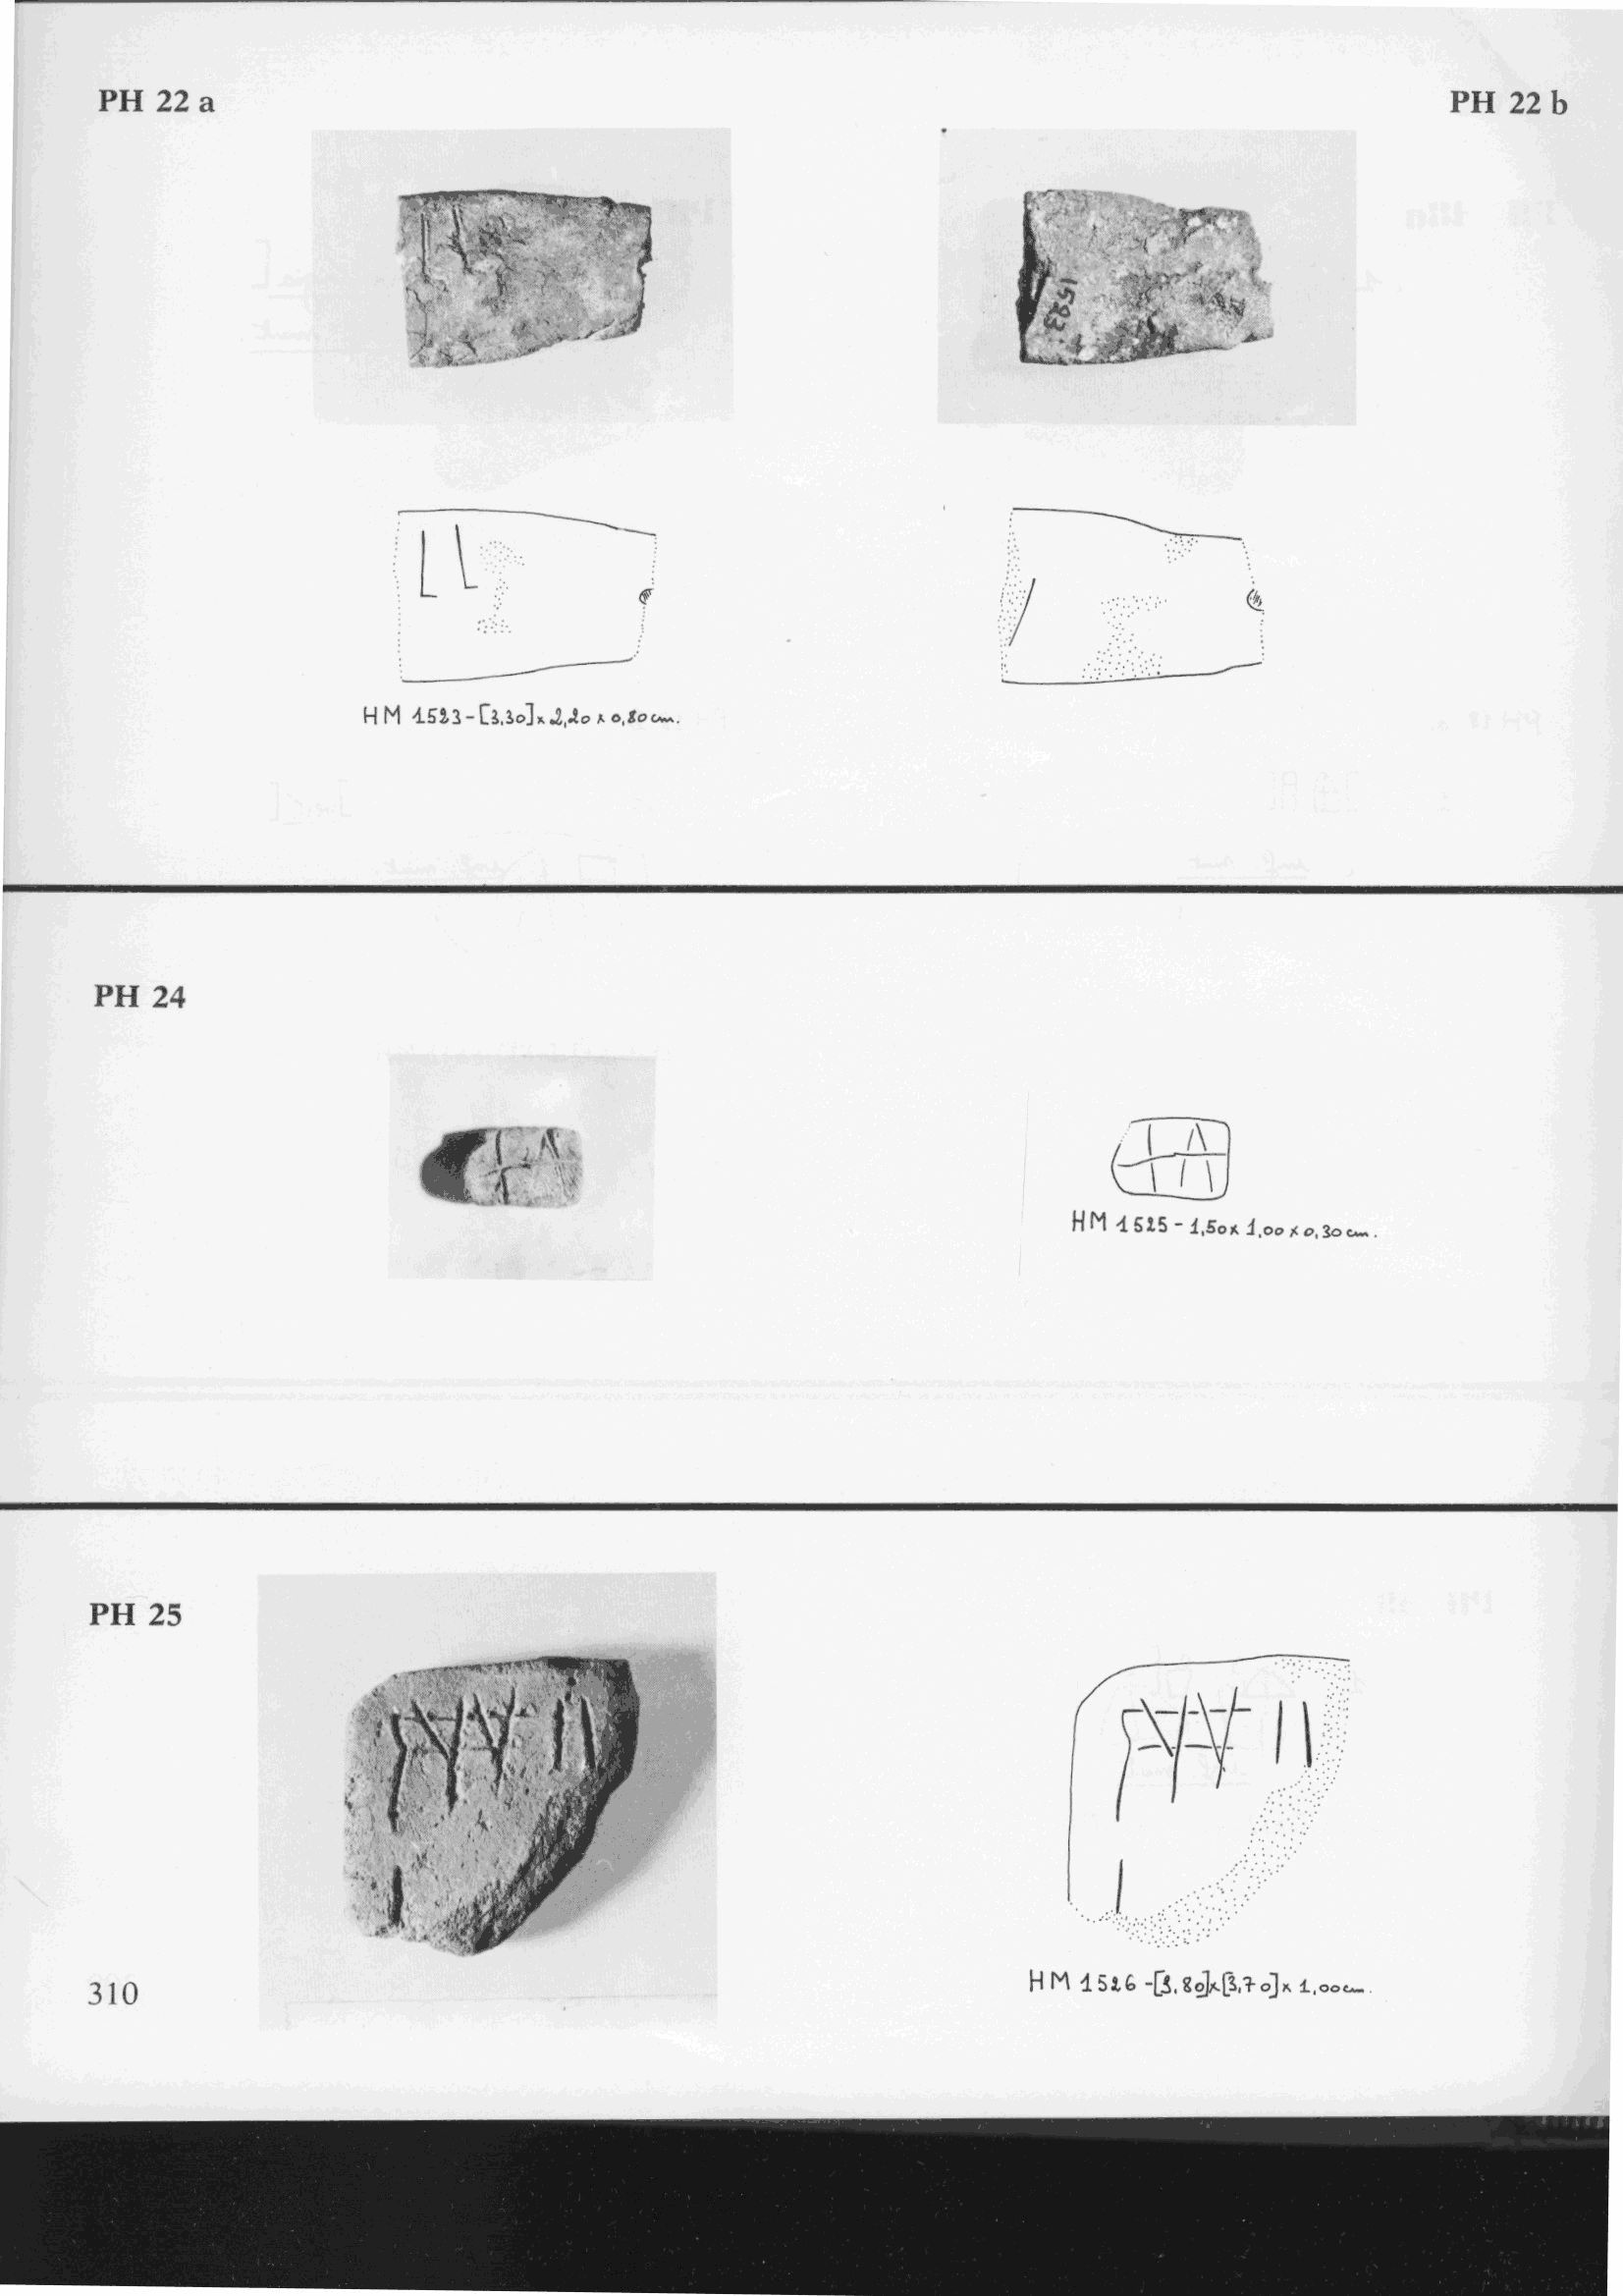 PH 22 a
PH 22 b
1523
HM 1523 - [3,30] x 2,20 x 0,80 cm.
PH 24
HM 1525 - 1,50 x 1,00 x 0,30 cm.
PH 25
HM 1526 - [3,80] x [3,70] x 1,00 cm.
310